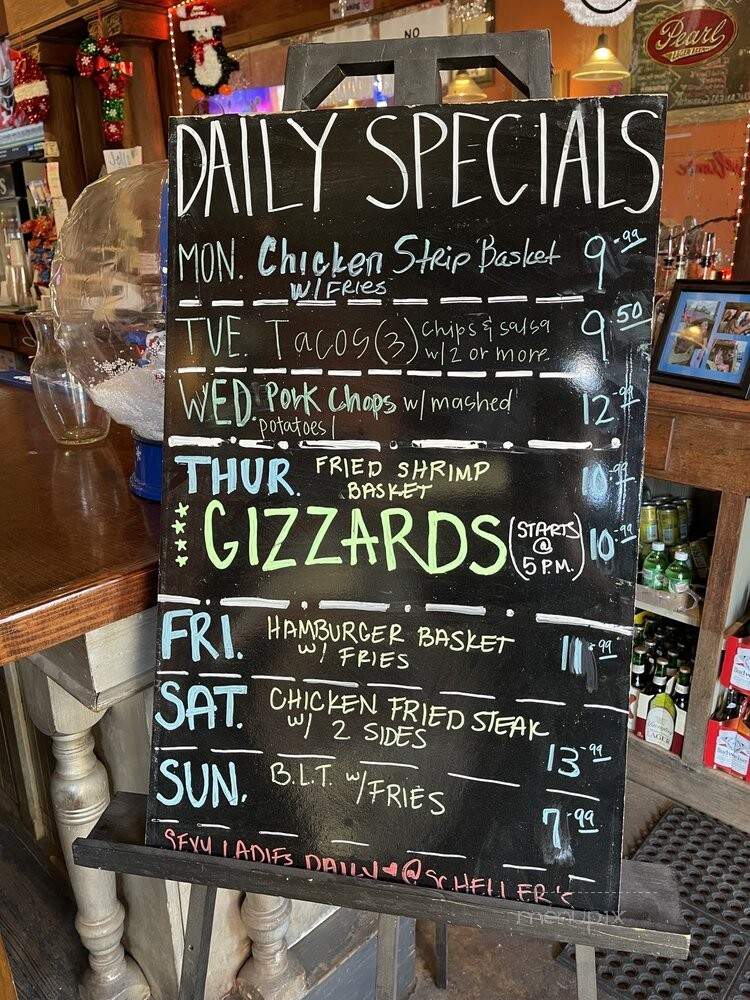 NO
Pearl
DAILY SPECIALS
MON. Chicken Strip Basket 9.99
w/ FRIES
TUE. Tacos (3) chips & salsa 9.50
w/ 2 or more
WED. Pork Chops w/ mashed 12.99
potatoes
THUR. FRIED SHRIMP 10.99
BASKET
GIZZARDS (STARTS @ 5 P.M.) 10.99
FRI. HAMBURGER BASKET 11.99
w/ FRIES
SAT. CHICKEN FRIED STEAK
w/ 2 SIDES 13.99
SUN. B.L.T. w/ FRIES
7.99
SEXY LADIES DAILY ♥ @ SCHELLER'S
menupix